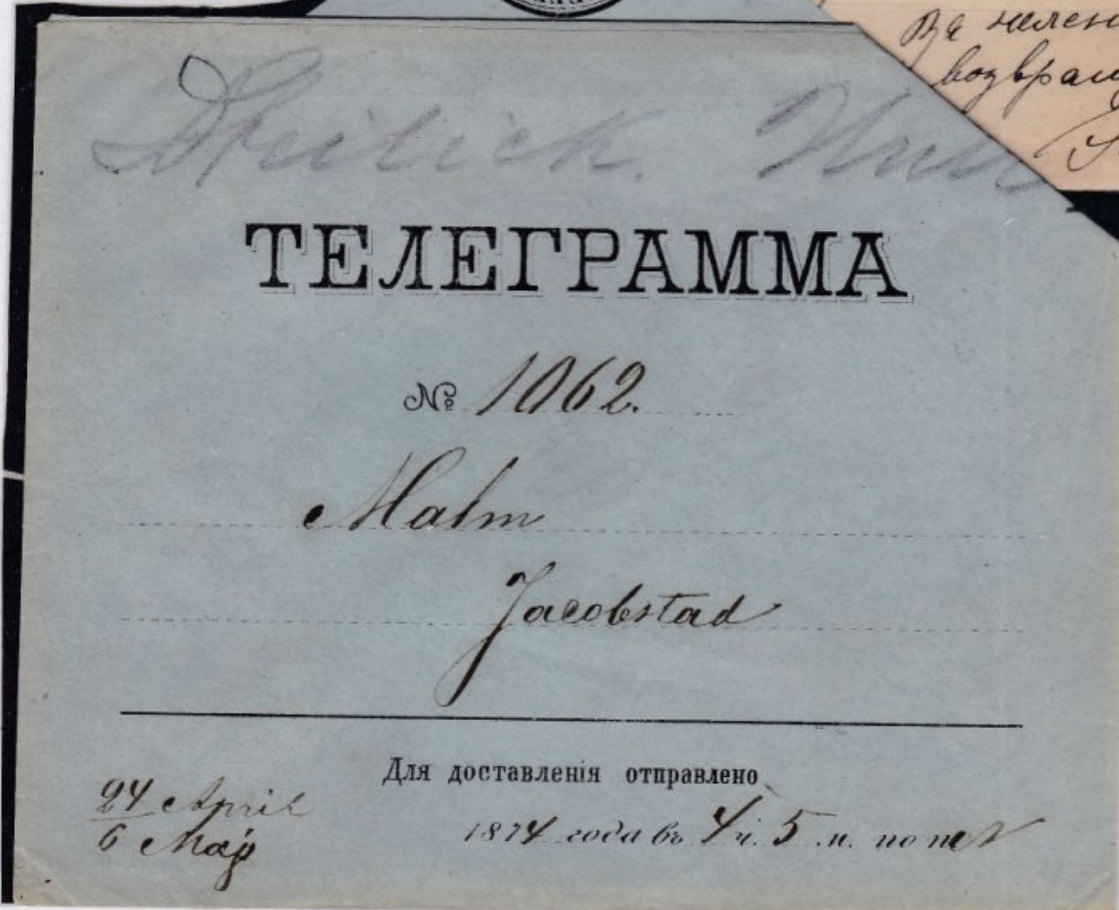 За
ТЕЛЕГРАММА
№ 1062.
Malm
Jacobstad
Для доставленія отправлено
24 April
6 Maj
1874 года въ 4 ч. 5 м. по пол